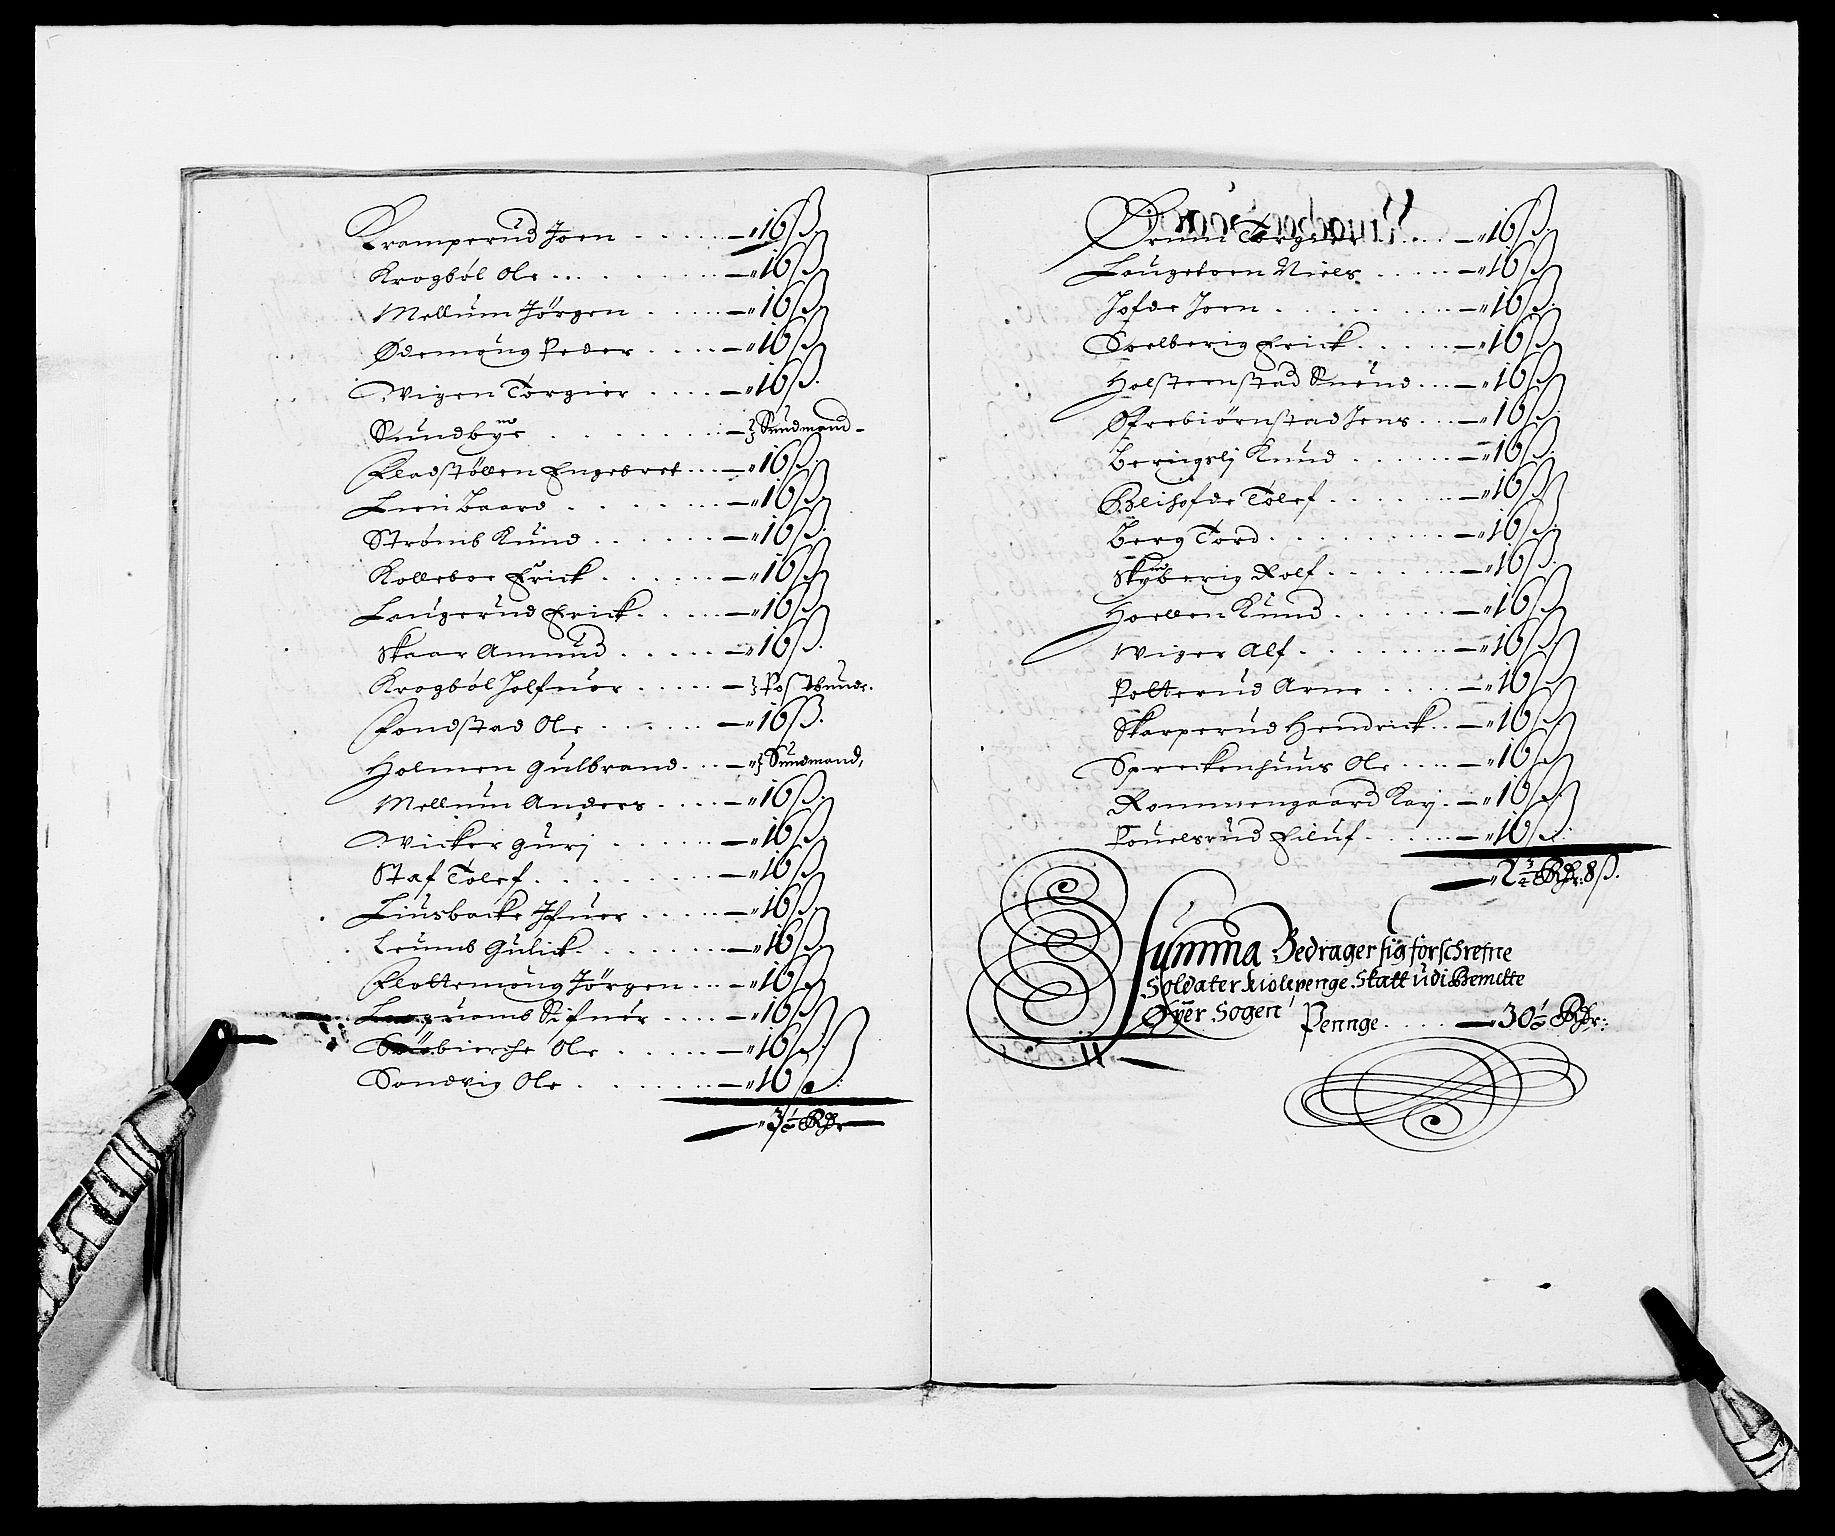 Kramperud Joen - - - - - - " 16 ß.
Krogböl Ole - - - - - - " 16 ß.
Mellum Jörgen - - - - - " 16 ß.
Ødemöng Peder - - - - - " 16 ß.
Wigen Torgier - - - - - " 16 ß.
Sundbye - - - - - - - } Sundmand -
Fladstöllen Engebret - - - " 16 ß.
Lien Baard - - - - - - " 16 ß.
Ströms Knud - - - - - - " 16 ß.
Kolleboe Erick - - - - - - " 16 ß.
Laugerud Erick - - - - - " 16 ß.
Skaar Amund - - - - - - " 16 ß.
Krogböl Jolfuer - - - - - } Postbunde.
Fondstad Ole - - - - - - " 16 ß.
Holmen Gulbrand - - - " } Sundmand,
Mellum Anders - - - - - " 16 ß.
Wicker Gurj - - - - - " 16 ß.
Staf Tolef - - - - - - - " 16 ß.
Liusbacke Ifuer - - - - - " 16 ß.
Leums Gulick - - - - - - " 16 ß.
Flottemöng Jörgen - - - " 16 ß.
Sifuer - - - - " 16 ß.
Ole - - - - - " 16 ß.
Sandvig Ole - - - - - - " 16 ß.
" 3½ Rdr
Ørum Torger - - - - " 16 ß.
Laugeboen Niels - - - - - " 16 ß.
Hofde Joen - - - - - - - " 16 ß.
Soelberig Erick - - - - - " 16 ß.
Holsteenstad Suend - - - " 16 ß.
Ofrebiörnstad Jens - - - " 16 ß.
Berigslj Knud - - - - - - " 16 ß.
Blihofde Tolef - - - - - " 16 ß.
Berg Tord - - - - - - - " 16 ß.
Skyberig Rolf - - - - - " 16 ß.
Hoellen Knud - - - - - - " 16 ß.
Wiger Alf - - - - - - - " 16 ß.
Potterud Arne - - - - - " 16 ß.
Skarperud Hendrick - - " 16 ß.
Spreckenhuus Ole - - - - " 16 ß.
Rommengaard Kay - - " 16 ß.
Pouelsrud Eiluf - - - - - " 16 ß.
" 2¾ Rdr: 8 ß.
Summa Bedrager sig forschrefne
Soldater Kiolepenge Skatt udi Bemelte
Øyer Sogen
Pennge - - - - " 30½ Rdr: